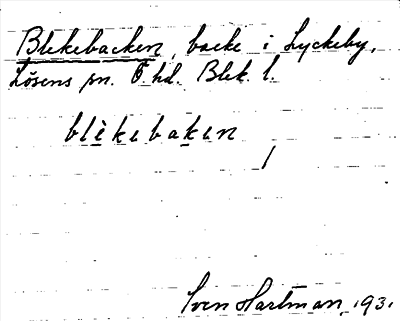 Blekebacken, backe i Lyckeby,
Lösens sn. Ö. hd. Blek. l.
blèkebaken
Sven Hartman, 1931